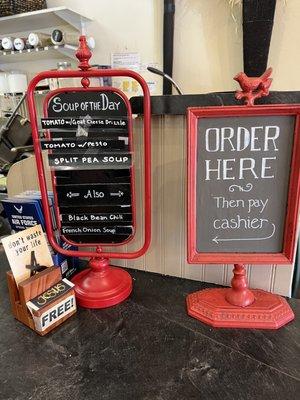 Soup of the Day
Tomato w/ Goat Cheese Drizzle
Tomato w/Pesto
Split Pea Soup
Also
Black Bean Chili
French Onion Soup
Order
Here
Then pay
cashier
AIR FORCE
don't waste your life
JESUS
FREE!